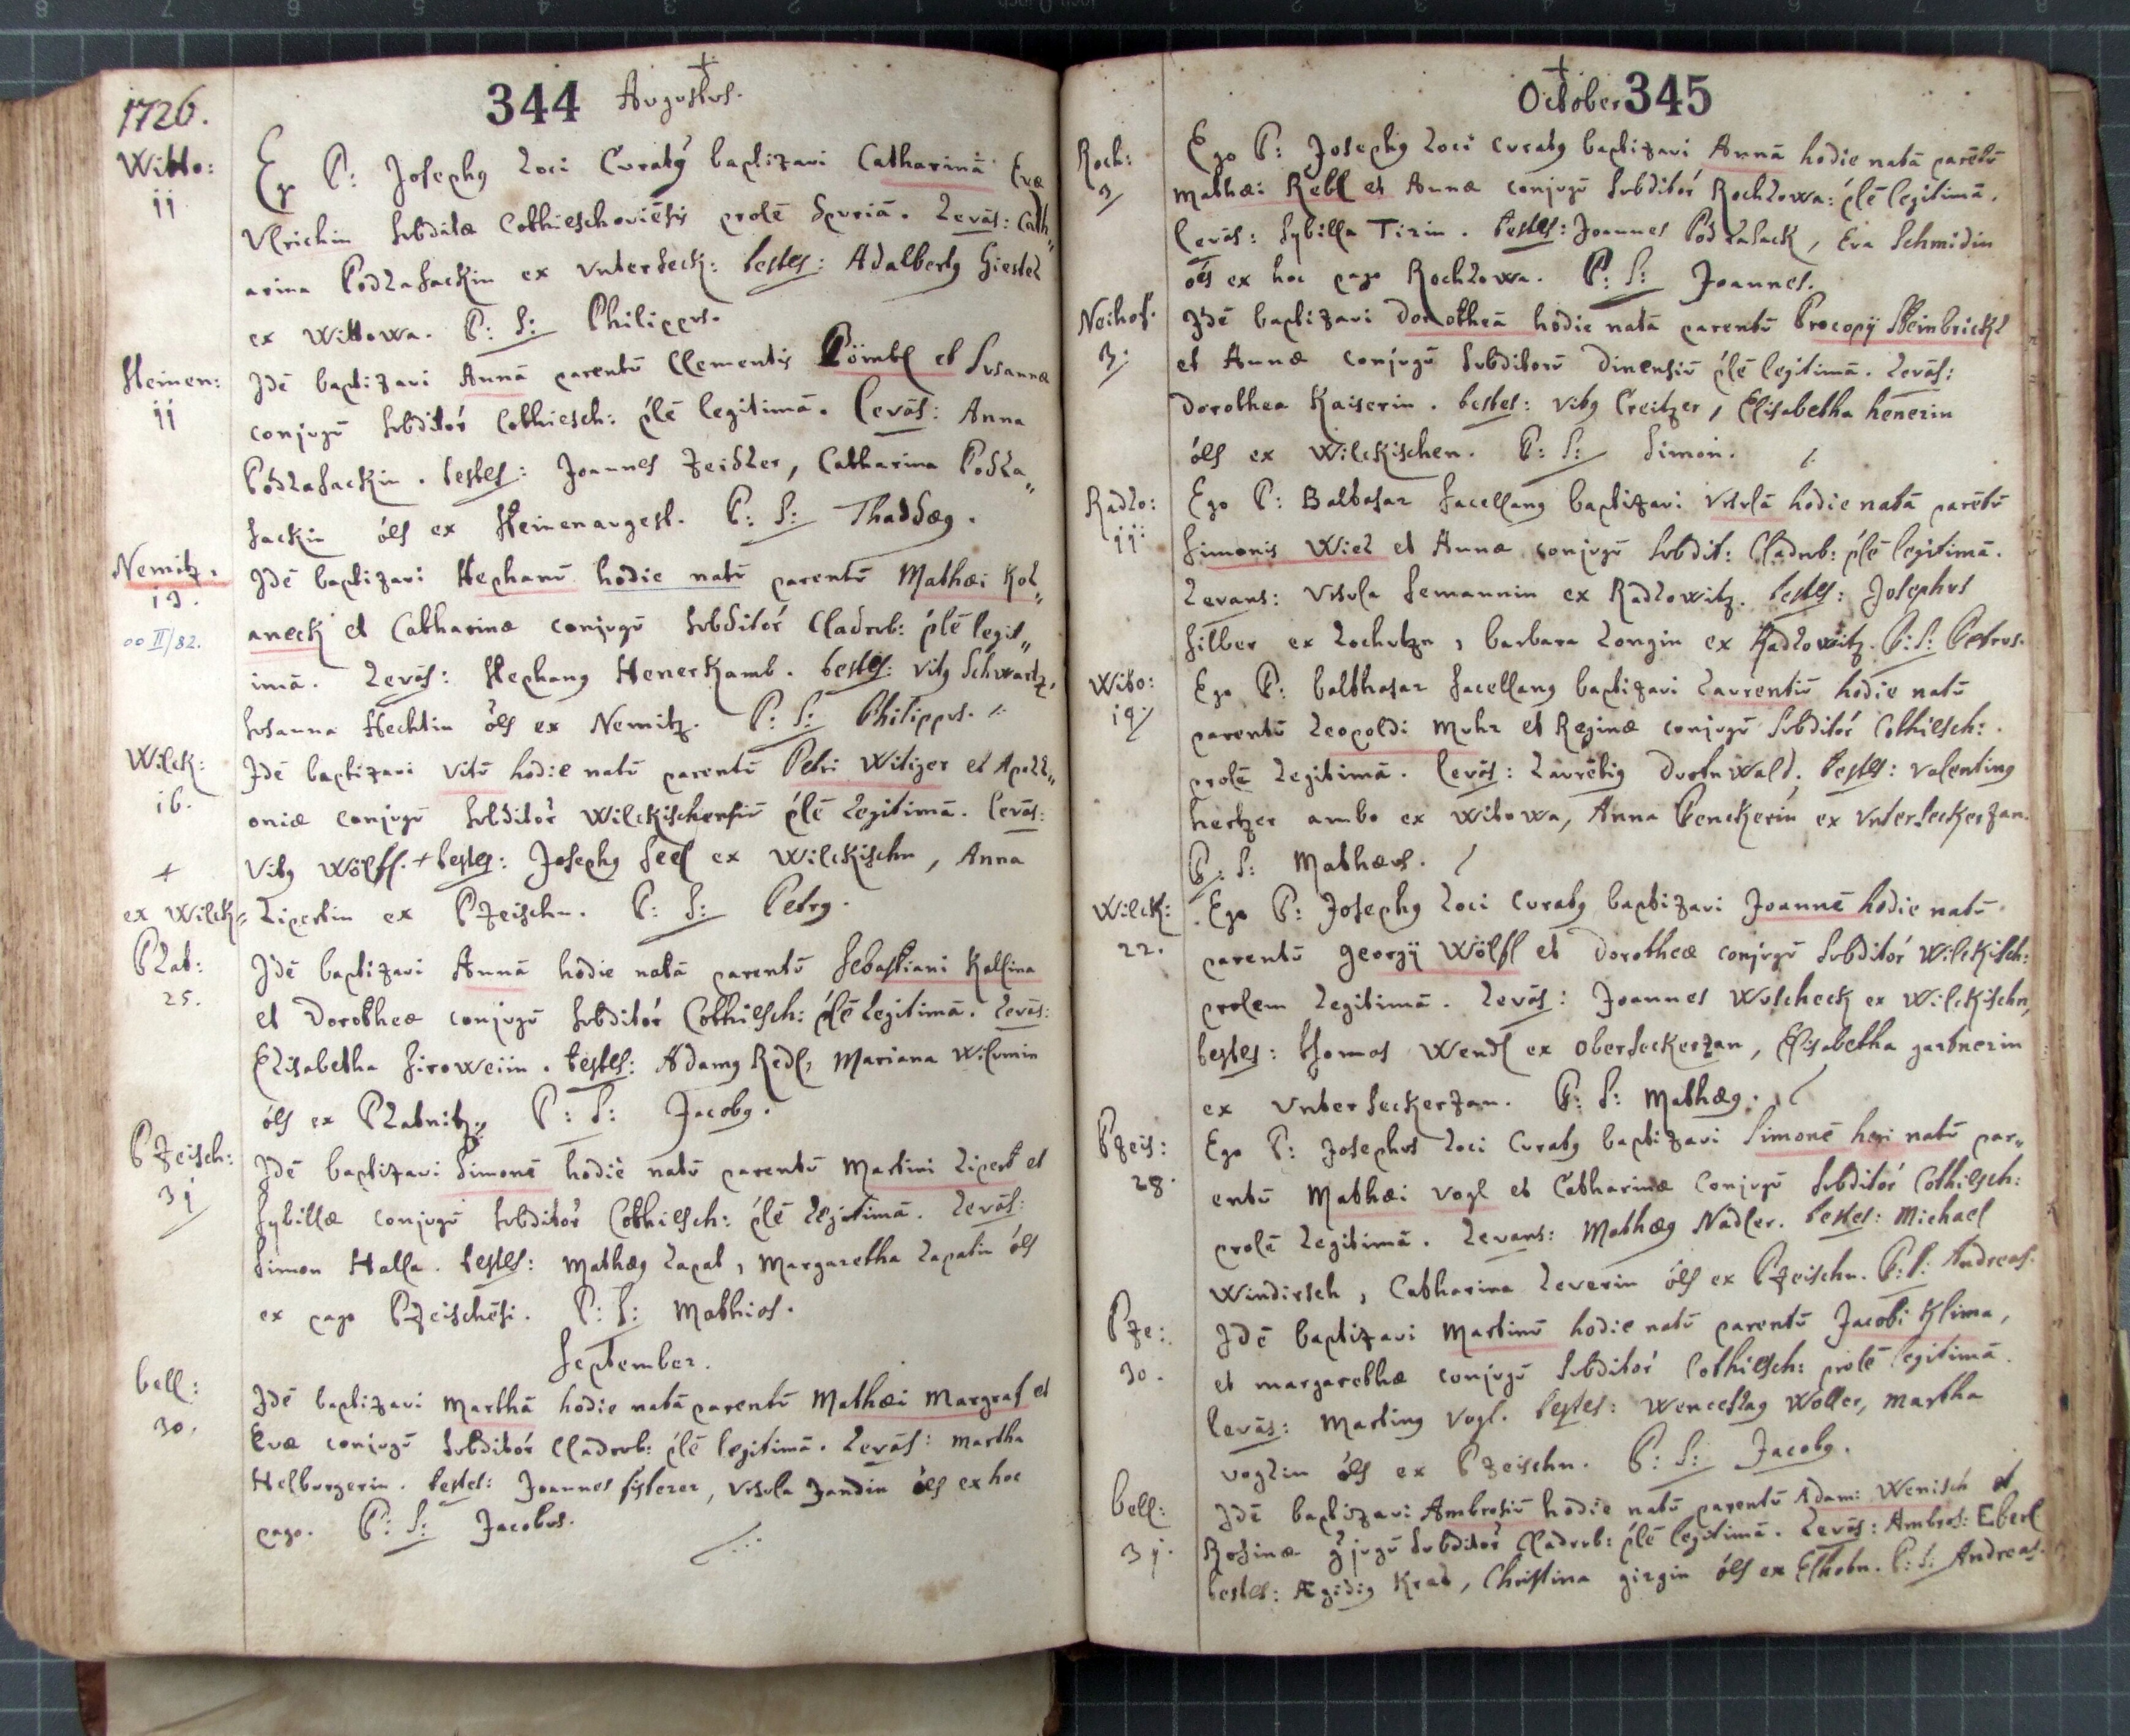 1726.
344 Augustus.
Witto:
11
Ego P: Josephg Loci Curatg baptizavi Catharinā Evæ
Ulrichin subditæ Cothieschoviēsis prolē spuriā. Levās: Cath„
arina Podlasackin ex Unterseck: testes: Adalbertg Giestel
ex Wittowa. P: S: Philippus.
Steinen:
11
Idē baptizavi Annā parentū Clementis Pömbl et Susannæ
conjugū subditór Cothiesch: p̄lē legitimā. Levās: Anna
Podlasackin. testes: Joannes Zeidler, Catharina Podla„
sackin óēs ex Steinenaugest. P: S: Thaddæg.
Nemitz.
13.
oo II/82.
Idē baptizavi Stephanū hodie natū parentū Mathæi Kol„
aneck et Catharinæ conjugū subditór Cladrub: p̄lē legit„
imā. Levās: Stephang Henerkamb. testes: Vitg Schwartz,
Susanna Hechtin óēs ex Nemitz. P: S: Philippus.
Wilck:
16.
Idē baptizavi Vitū hodie natū parentū Petri Witiger et Apoll„
oniæ conjugū subditór Wilckischensiū p̄lē Legitimā. Levās:
+
Vitg Wölfl. + testes: Josephg Seel ex Wilckischn, Anna
ex Wilck=
Lipertin ex Pzeischn. P: S: Petrg.
Plat:
25.
Idē baptizavi Annā hodie natā parentū Sebastiani Kallina
et Dorotheæ conjugū subditór Cothiesch: p̄lē Legitimā. Levās:
Elisabetha Siroweiin. testes: Adamg Redl, Mariana Wilumin
óēs ex Platnitz. P: S: Jacobg.
Pzeisch:
31
Idē baptizavi Simonē hodie natū parentū Martini Lipert et
Sybillæ conjugū subditór Cothiesch: p̄lē Legitimā. Levās:
Simon Halla. testes: Mathæg Lapat, Margaretha Lapatin óēs
ex pago Pzeischēsi. P: S: Mathias.
September.
bell:
30.
Idē baptizavi Marthā hodie natā parentū Mathæi Margraf et
Evæ conjugū subditór Cladrub: p̄lē legitimā. Levās: Martha
Helburgerin. testes: Joannes fisterer, Ursula Jandin óēs ex hoc
pago. P: S: Jacobus.
October 345
Roch:
3
Ego P: Josephg Loci curatg baptizavi Annā hodie natā parētū
Mathæi Rebl et Annæ conjugū subditór Rochlowa: p̄lē legitimā.
Levās: Sybilla Tirin. testes: Joannes Podlasack, Eva Schmidin
óēs ex hoc pago Rochlowa. P: S: Joannes.
Neihof.
3:
Idē baptizavi Dorotheā hodie natā parentū Procopÿ Steinbrickl
et Annæ conjugū subditorū Dinensiū p̄lē legitimā. Levās:
Dorothea Kaiserin. testes: Vitg Creitzer, Elisabetha henerin
óēs ex Wilckischen. P: S: Simon.
Radlo:
11:
Ego P: Baltasar Sacellang baptizavi Ursulā hodie natā parētū
Simonis Wiel et Annæ conjugū subdit: Cladrub: p̄lē legitimā.
Levans: Ursula Semannin ex Radlowitz. testes: Josephus
Silber ex Lochutzn, barbara Longin ex Radlowitz. P: S: Petrus.
Wito:
19.
Ego P: balthasar Sacellang baptizavi Laurentiū hodie natū
parentū Leopoldi Muhr et Reginæ conjugū subditór Cothiesch:
prolē Legitimā. Levās: Laurētig Durtnwald, testes: Valenting
hertzer ambo ex Witowa, Anna Penckerin ex Unterseckerzan.
P: S: Mathæus.
Wilck:
22.
Ego P: Josephg Loci Curatg baptizavi Joannē hodie natū
parentū Georgÿ Wölfl et Dorotheæ conjugū subditór Wilckisch:
prolem Legitimā. Levās: Joannes Wuscheck ex Wilckischn,
testes: thomas Wendl ex Oberseckerzan, Elisabetha gartnerin
ex Unterseckerzan. P: S: Mathæg.
Pzeis:
28.
Ego P: Josephus Loci Curatg baptizavi Simonē heri natū par„
entū Mathæi Vogl et Catharinæ Conjugū subditór Cothiesch:
prolē Legitimā. Levans: Mathæg Nadler. testes: Michael
Windirsch, Catharina Leverin óēs ex Pzeischn. P: S: Andreas.
Pze:
30.
Idē baptizavi Martinū hodie natū parentū Jacobi Klima,
et margarethæ conjugū subditór Cothiesch: prolē legitimā.
Levās: Marting Vogl. testes: Wenceslag Woller, Martha
voglin óēs ex Pzeischn. P: S: Jacobg.
bell:
31.
Idē baptizavi Ambrosiū hodie natū parentū Adam: Wenisch et
Rosinæ gjugū subditór Cladrub: p̄lē legitimā. Levās: Ambros: Eberl
testes: Ægidig Krad, Christina girgin óēs ex Elhotn. P: S: Andreas.